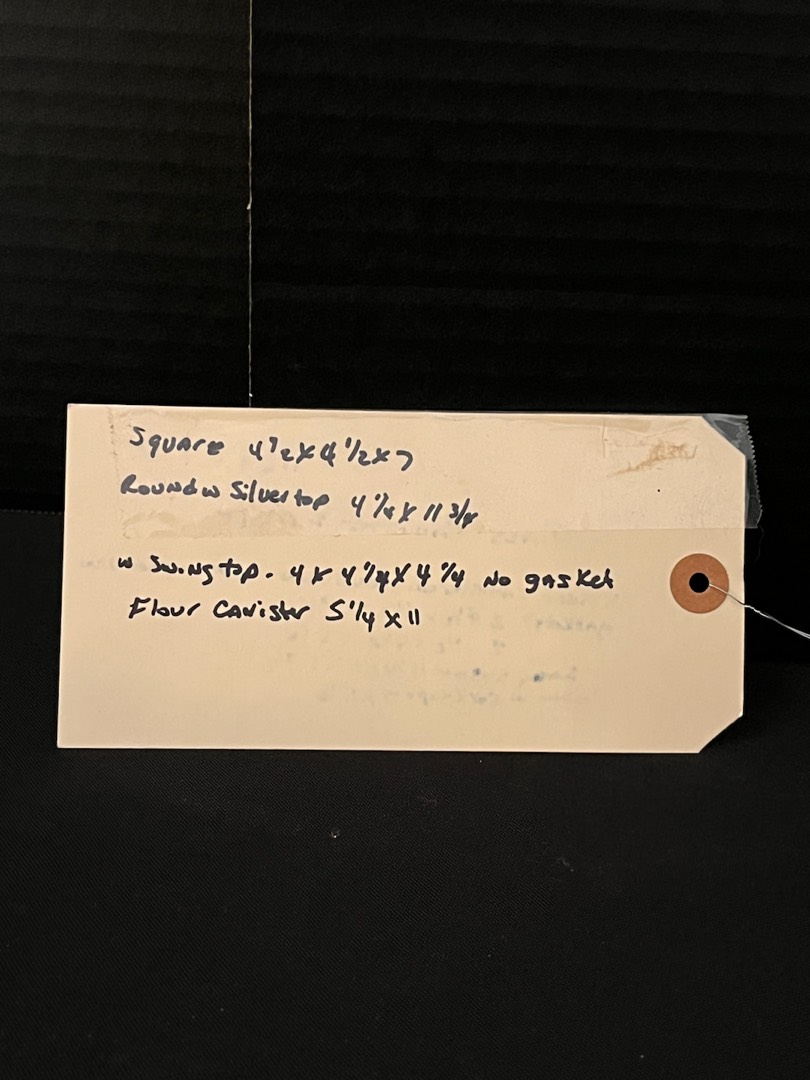 Square 4 1/2 x 4 1/2 x 7
Round w Silver top 4 1/4 x 11 3/4
w Swing top. 4 x 4 1/4 x 4 1/4 No gasket
Flour Canister 5 1/4 x 11